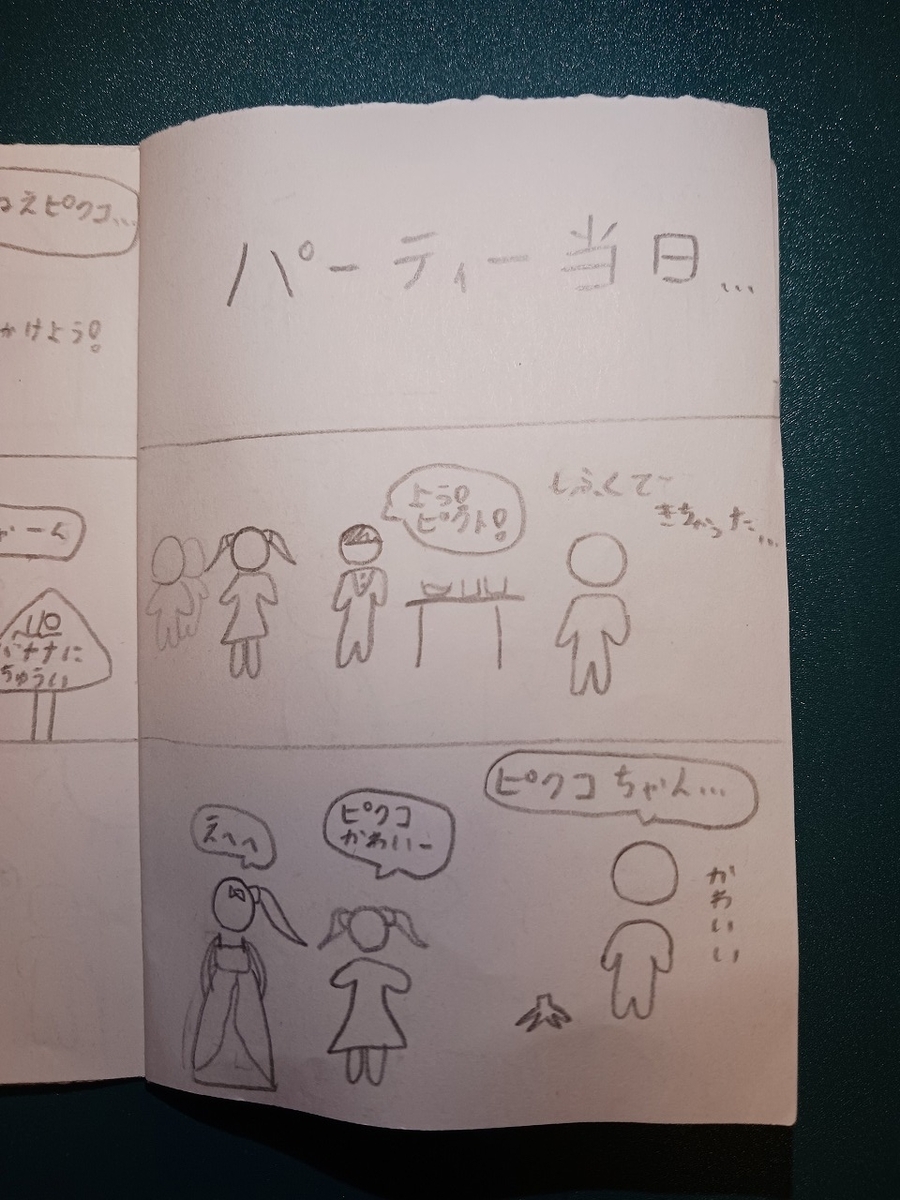 パーティー当日...
よう!
ピクト!
しふくで
きちゃった...
ピクコちゃん...
かわいい
ピクコ
かわいー
えへへ
ねえピクコ...
かけよう!
バナナに
ちゅうい